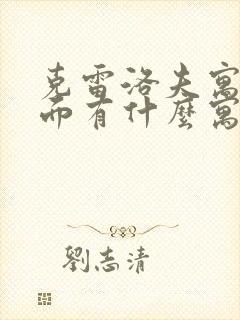 克雷洛夫寓
而有什麼寓
劉志清